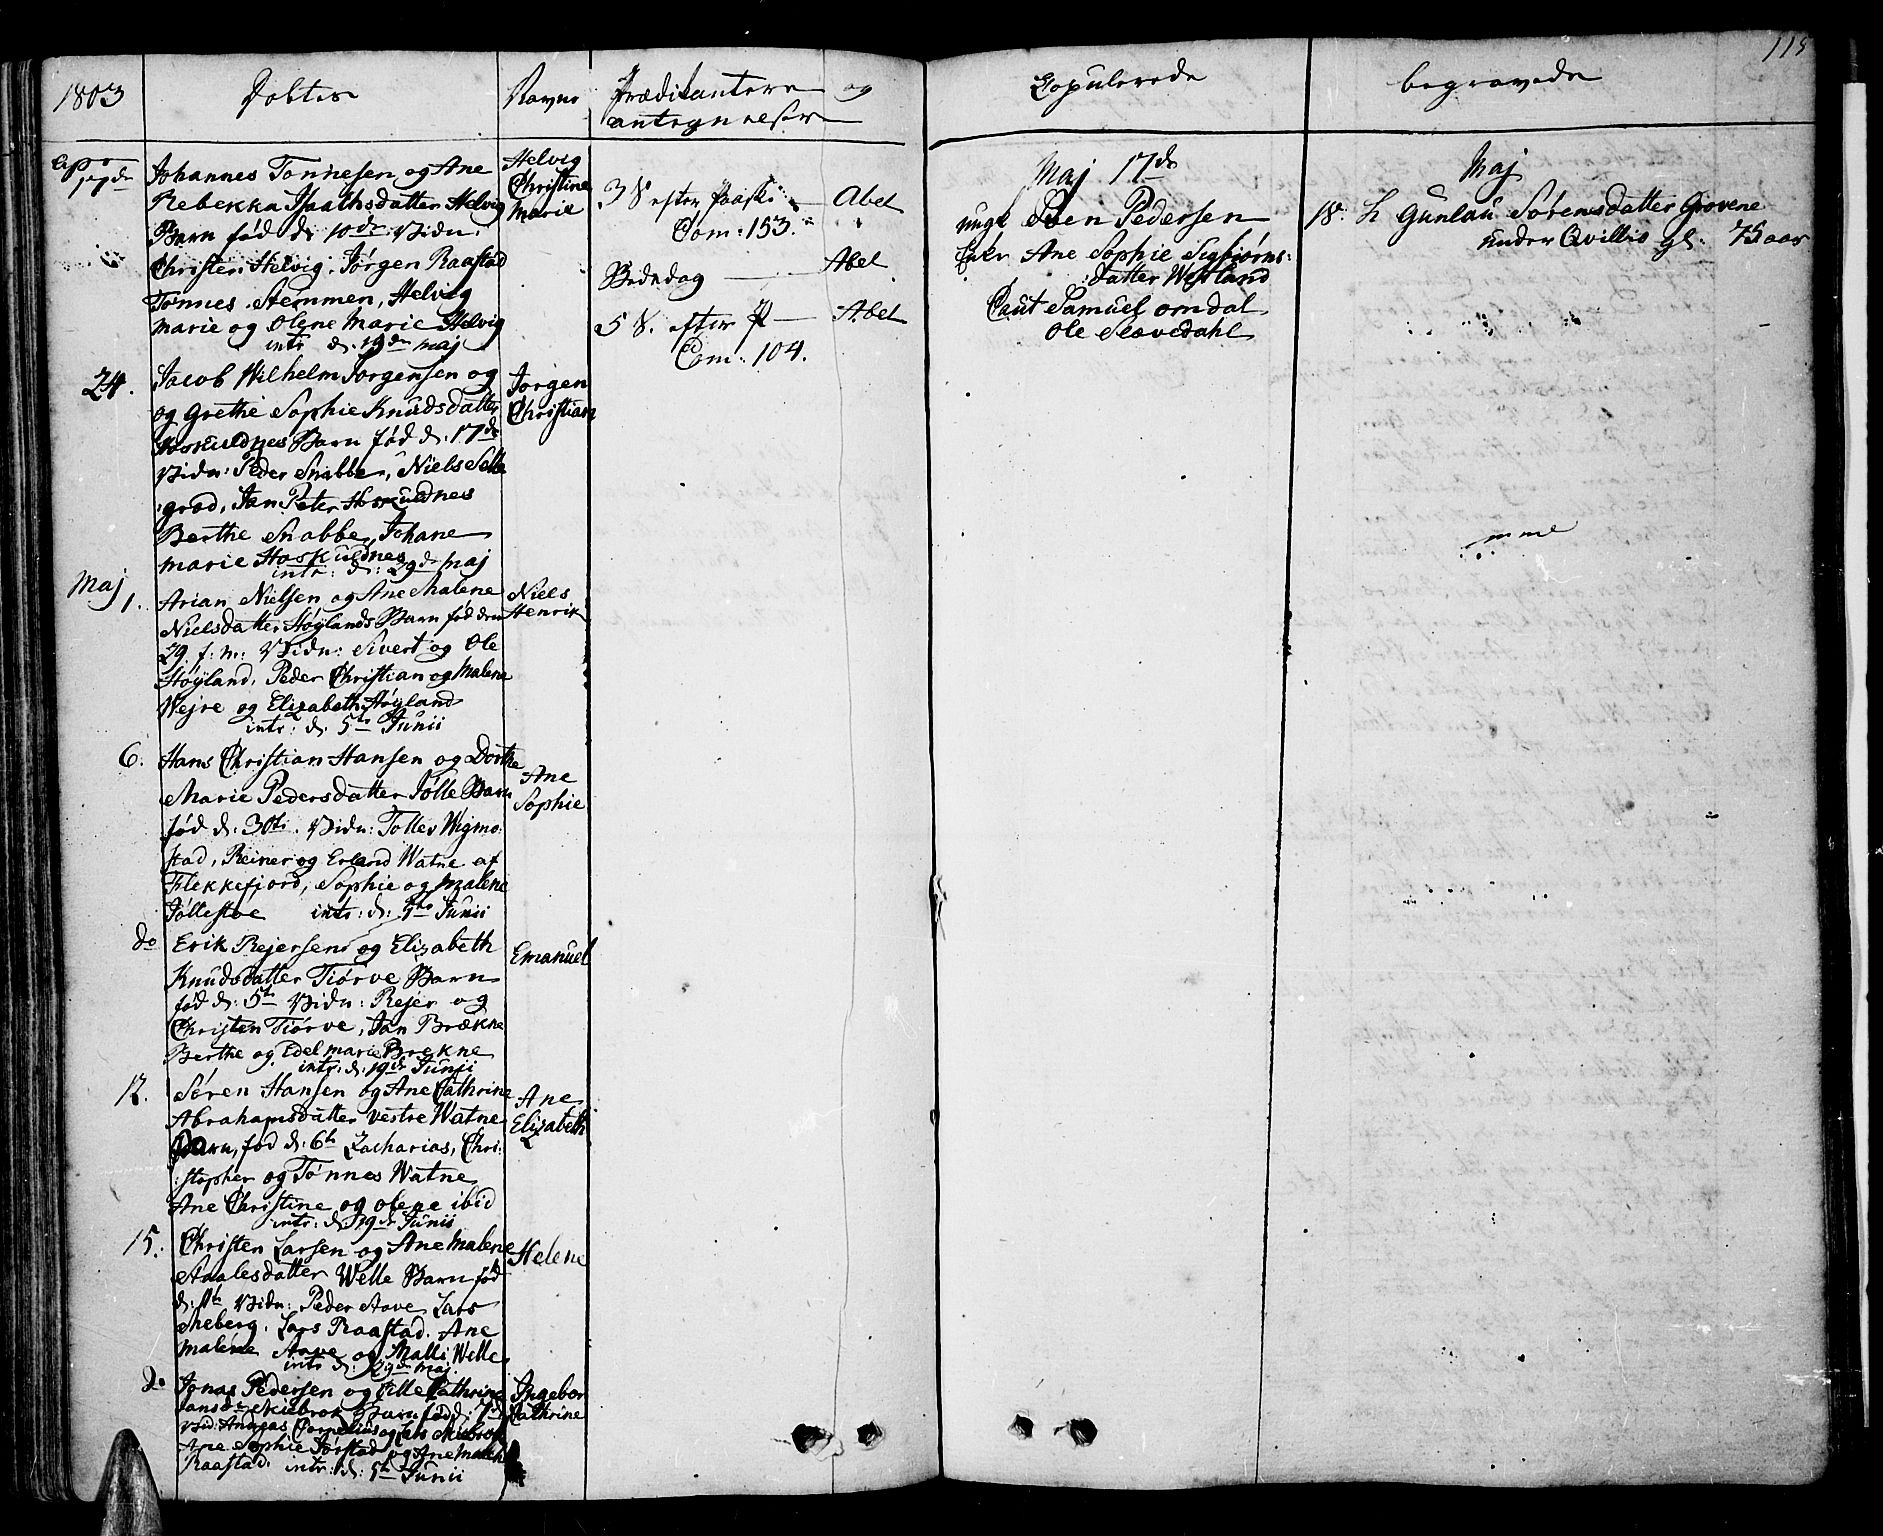 1803
Døbte
Navne
Prædikantere og
antegnelser
Copulerede
begravede
115
Apr.
17de
Johannes Tønnesen og Ane
Rebekka Isaathsdatter Helvig
Barn fød d. 10de Vidn:
Christen Helvig, Jørgen Raastad
Tønnes Stemmen, Helvig
Marie og Olene Marie Helvig
intr d. 19de Maj
Helvig
Christine
Marie
24.
Jacob Wilhelm Jørgensen og
og Grethe Sophie Knudsdatter
Hoskuldnes Barn fød d: 17de
Vidn: Peder Snabbe, Niels Selle
grød, Jan Peter Hoskuldnes
Berthe Snabbe, Johane
Marie Hoskuldnes
intr: d: 29de Maj
Jørgen
Christian
Maj 1.
Arian Nielsen og Ane Malene
Nielsdatter Høylands Barn fød den
29 f: m: Vidn: Sivert og Ole
Høyland, Peder Christian og Malene
Wejre og Elizabeth Høyland
intr: d. 5te Junii
Niels
Henrik
6.
Hans Christian Hansen og Dorthe
Marie Pedersdatter Jølle Barn
fød d: 30te. Vidn: Tollev Wigmo
stad, Reiner og Erland Watne af
Flekkefjord, Sophie og Malene
Jøllestøe intr: d: 5te Junii
Ane
Sophie
do
Erik Rejersen og Elizabeth
Knudsdatter Tiørve Barn
fød d: 5te Vidn: Rejer og
Christen Tiørve, Jan Brækne
Berthe og Edel Marie Brekne
intr: d: 19de Junii
Emanuel
12.
Søren Hansen og Ane Cathrine
Abrahamsdatter vestre Watne
Barn, fød d: 6te Zacharias, Chri:
:stopher og Tønnes Watne
Ane Christine og Olene ibid
intr: d: 19de Junii
Ane
Elizabeth
15.
Christen Larsen og Ane Malene
Staalesdatter Welle Barn fød
d: 1te Vidn: Peder Aave Lars
Sheberg, Lars Raastad. Ane
Malene Aave og Malli Welle
intr d: 29de Maj
Helene
do
Jonas Pedersen og Cathrine
Jansdr Skiebrok Barn fød d: 7de
Vid: Andreas Cornelius og Lars Skiebrok
Ane Sophie Jørstad og Ane Malene
Raastad. intr: d: 5te Junii
Ingebor
Cathrine
3 S. efter Paaske Abel
Com: 153.
Bededag Abel
5 S. efter P Abel
Com: 104.
Maj 17de
ungk Sven Pedersen
Enke Ane Sophie Sigbiørns:
:datter Westland
Caut Samuel Omdal
Ole Slævedahl
Maj
18. L Gunlau Sørensdatter Grovene
under Qvillis gl. 75 aar